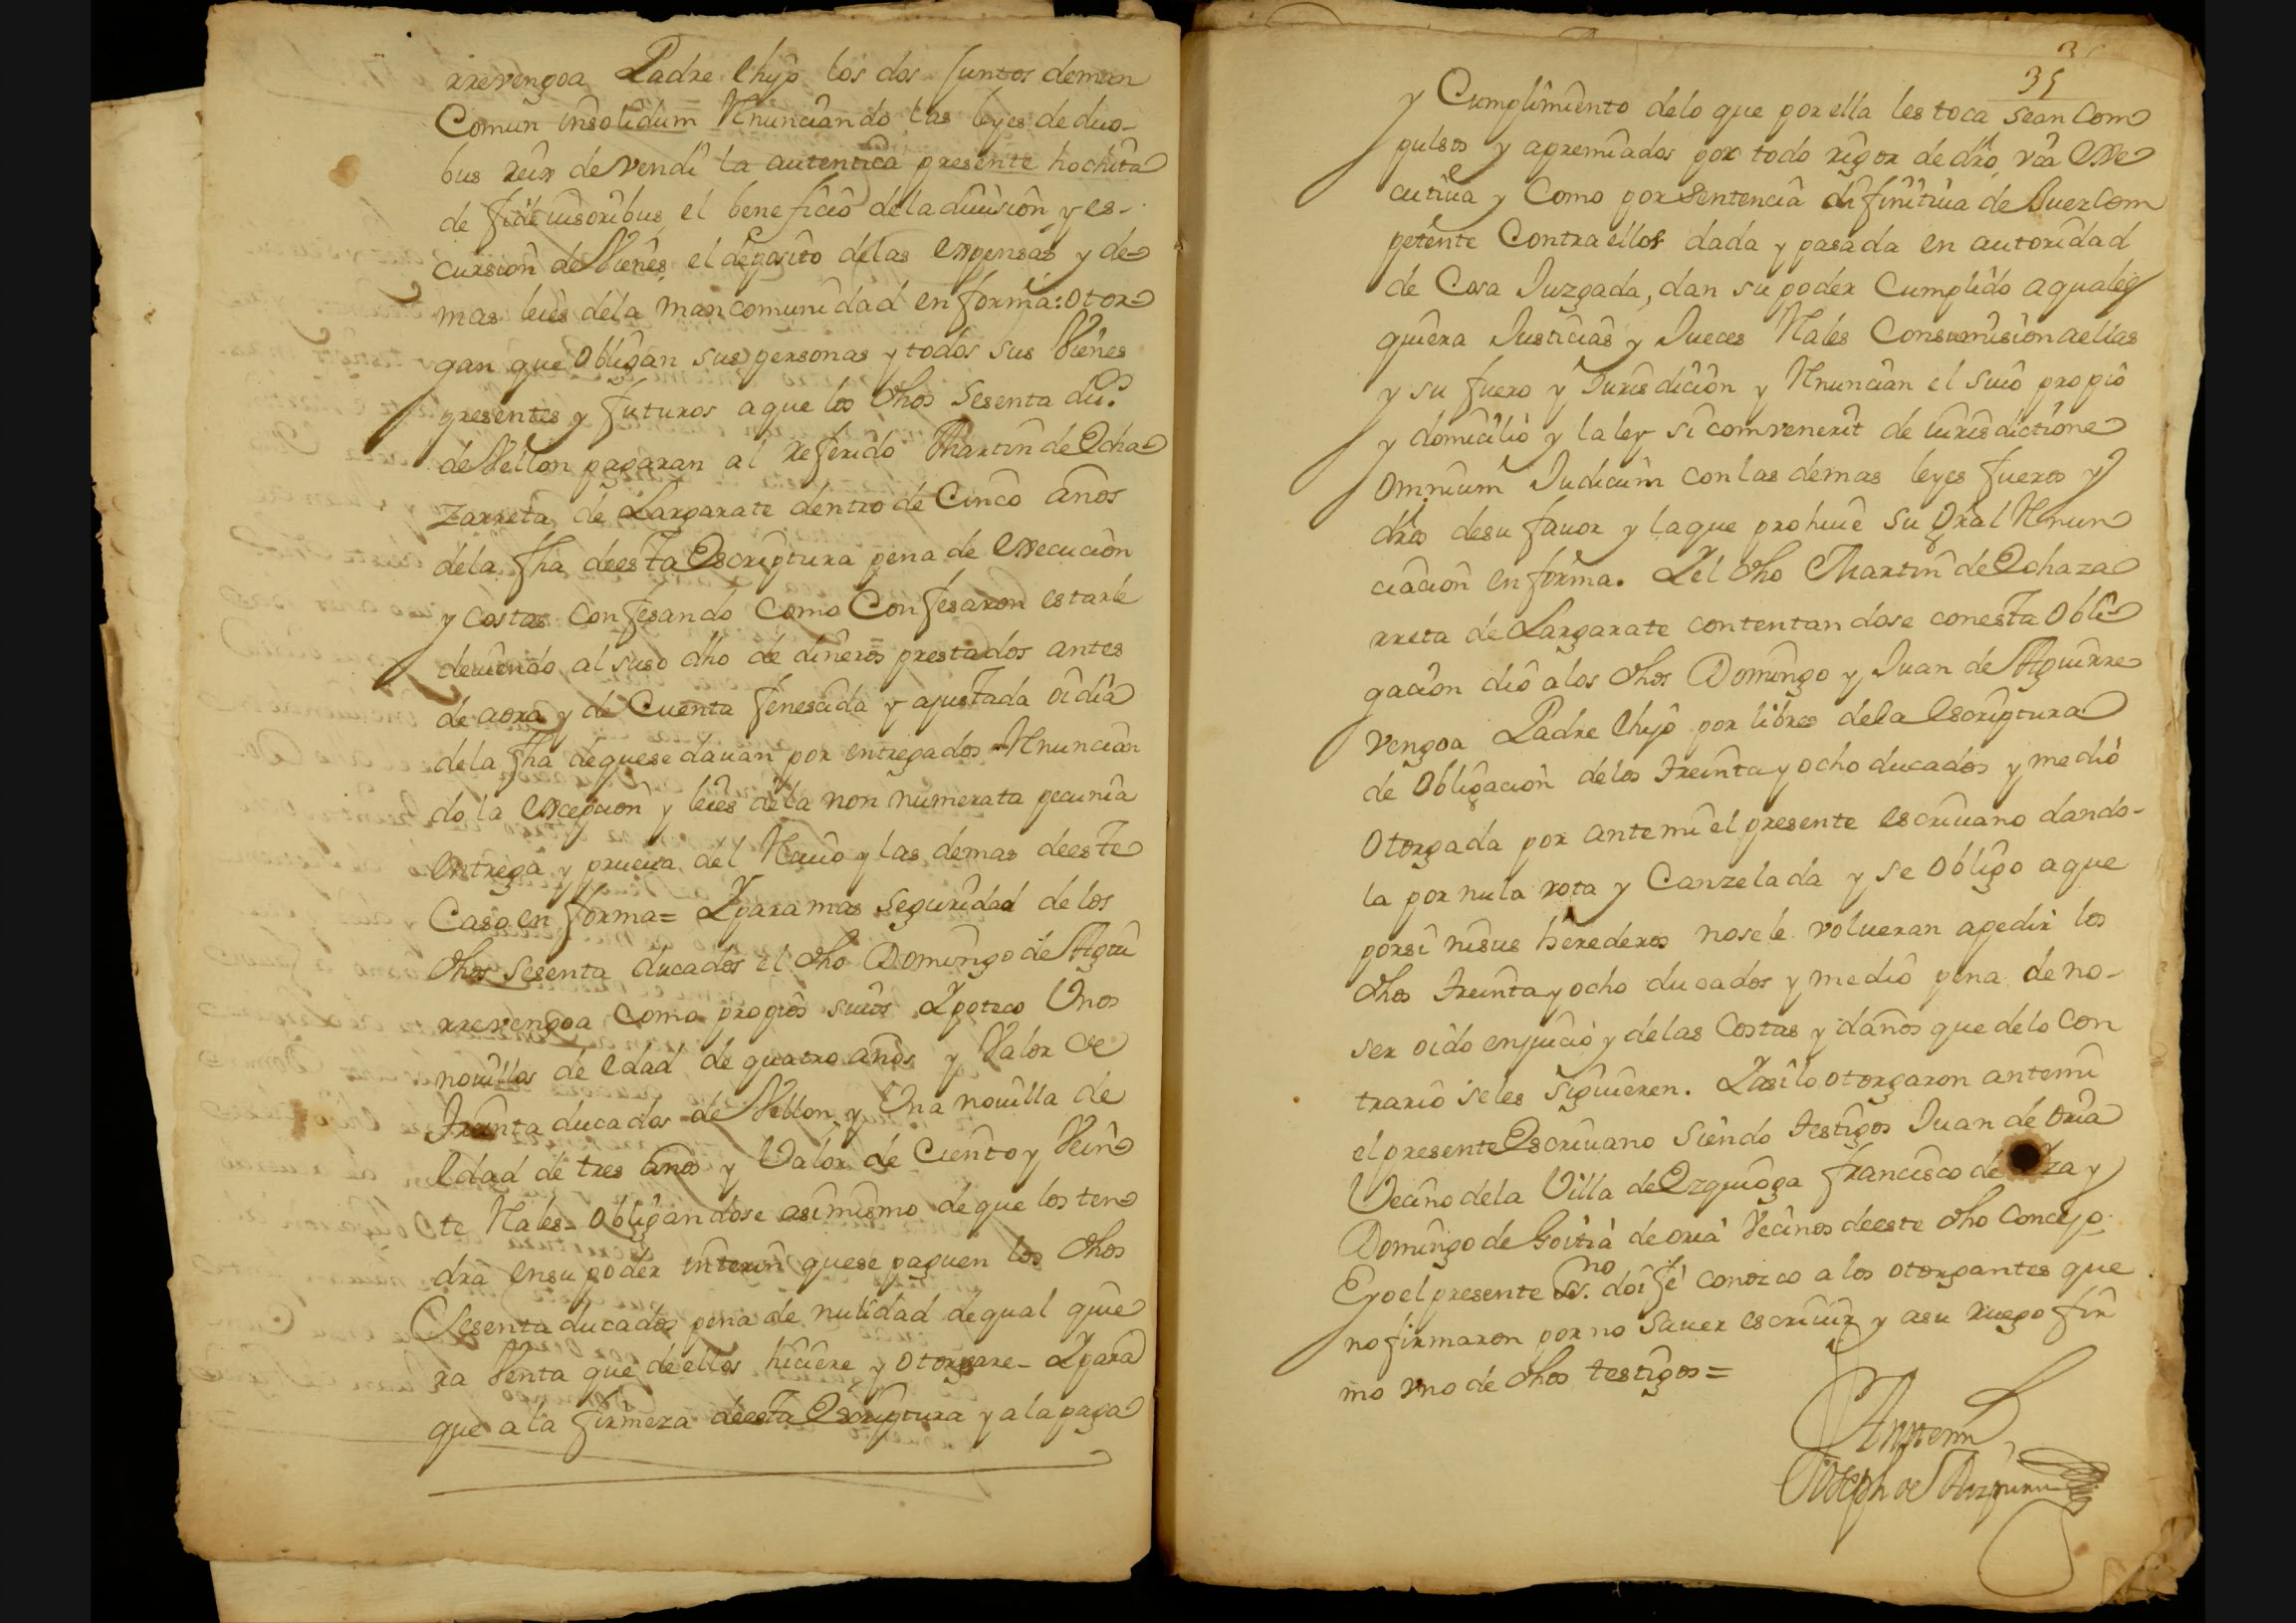 rrevengoa Padre e hijo los dos Juntos deman
Comun insolidum Renunciando las leyes de duo-
bus reix devendi la autentica presente hochita
de fide iusoribus el beneficio dela diuision y es-
cursion de Vienes el deposito delas expensas y de-
mas leies dela mancomunidad en forma: otor-
gan que obligan sus personas y todos sus Vienes
presentes y futuros aque los dhos Sesenta du.os
de Vellon pagaran al referido Martin de Ocha-
zarreta de Largarate dentro de Cinco años
dela fha deesta Escriptura pena de execucion
y costas Confesando Como Confesaron estarle
deuiendo al suso dho de dineros prestados antes
de aora y de Cuenta fenesida y ajustada oi dia
dela fha dequese dauan por entregados Renuncian
do la excepcion y leies dela non numerata pecunia
entrega y prueua del Reciuo y las demas deeste
Caso en forma = Y para mas seguridad de los
dhos sesenta ducados el dho Domingo de Agui
rrevengoa como propios suios Ypoteco Unos
nouillos de edad de quatro años y Valor de
treinta ducados de Vellon y Una nouilla de
edad de tres años y Valor de Ciento y Vein-
te Rales - obligandose asimismo de que los ten-
dra ensu poder interin quese paguen los dhos
Sesenta ducados pena de nulidad dequal quie
ra Venta que de ellos hiciere y otorgare - Y para
que a la firmeza deesta Escriptura y ala paga
35
y Cumplimiento delo que por ella les toca sean Com
pulsos y apremiados por todo rigor de dro, via exe
cutiua y Como por sentencia difinitiua de Juez Com
petente Contra ellos dada y pasada en autoridad
de Cosa Juzgada, dan su poder Cumplido a quales
quiera Justicias y Jueces Rales Consumision a ellas
y su fuero y Jurisdicion y Renuncian el suio propio
y domicilio y la ley si comvenerit de iurisdictione
omnium Judicum con las demas leyes fueros y
dros desu fauor y la que prohiue su Gral Renun
ciacion en forma. Y el dho Martin de Ochaza
rreta de Largarate contentandose con esta obli-
gacion dio a los dhos Domingo y Juan de Aguirre
vengoa Padre e hijo por libres dela escriptura
de obligacion delos treinta y ocho ducados y medio
otorgada por ante mi el presente escriuano dando-
la por nula rota y Canzelada y se obligo a que
por si ni sus herederos nosele volueran a pedir los
dhos treinta y ocho ducados y medio pena de no-
ser oido en juicio y delas Costas y daños que delo Con
trario seles siguieren. Y asi lo otorgaron antemi
el presente Escriuano siendo testigos Juan de oria
Vecino dela Villa de Ezquioga francisco de za y
Domingo de Goitia de oria Vecinos deeste dho Concejo
E yo el presente ss.no doi fe conozco a los otorgantes que
no firmaron por no sauer escriuir y asu ruego fir
mo vno de dhos testigos =
Antemi
Joseph de